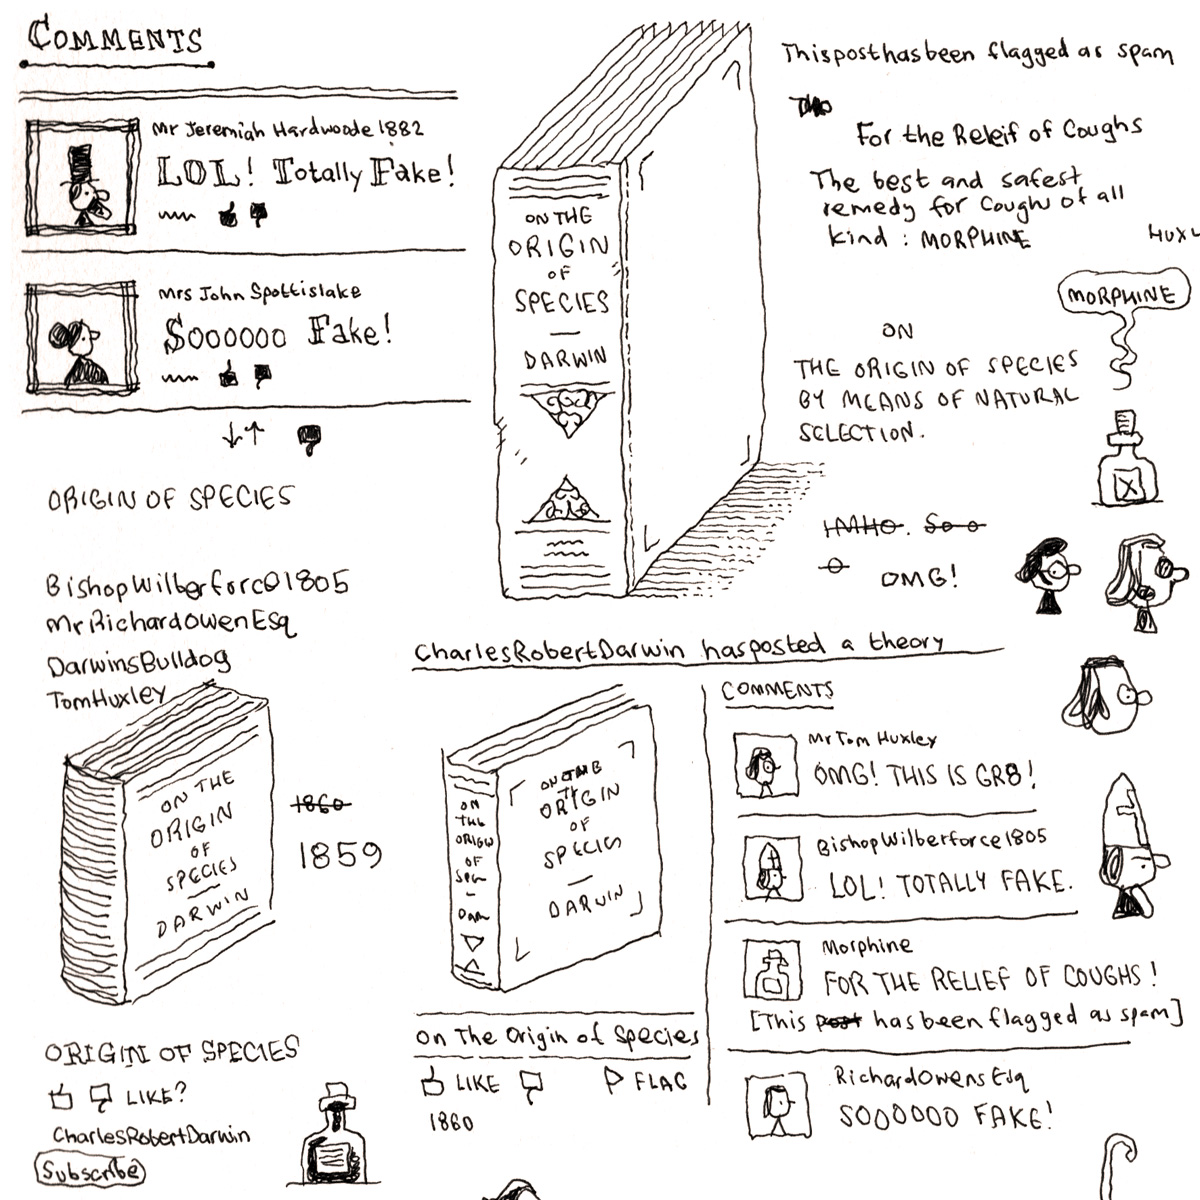 COMMENTS
Mr Jeremiah Hardwoode 1882
LOL! Totally Fake!
Mrs John Spottislake
Soooooo Fake!
ORIGIN OF SPECIES
BishopWilberforce1805
MrRichardOwenEsq
DarwinsBulldog
TomHuxley
ON THE
ORIGIN
OF
SPECIES
DARWIN
1860
1859
ORIGIN OF SPECIES
LIKE?
CharlesRobertDarwin
Subscribe
ON THE
ORIGIN
OF
SPECIES
DARWIN
This post has been flagged as spam
For the Releif of Coughs
The best and safest
remedy for Coughs of all
kind : MORPHINE
HUXL
MORPHINE
ON
THE ORIGIN OF SPECIES
BY MEANS OF NATURAL
SELECTION.
IMHO. Soo
o
OMG!
X
CharlesRobertDarwin hasposted a theory
ON
THE
ORIGIN
OF
SPEC
DAR
ON THE
ORIGIN
OF
SPECIES
DARWIN
On The Origin of Species
LIKE
FLAG
1860
COMMENTS
Mr Tom Huxley
OMG! THIS IS GR8!
BishopWilberforce1805
LOL! TOTALLY FAKE.
Morphine
FOR THE RELIEF OF COUGHS!
[This post has been flagged as spam]
RichardOwensEsq
SOOOOOO FAKE!